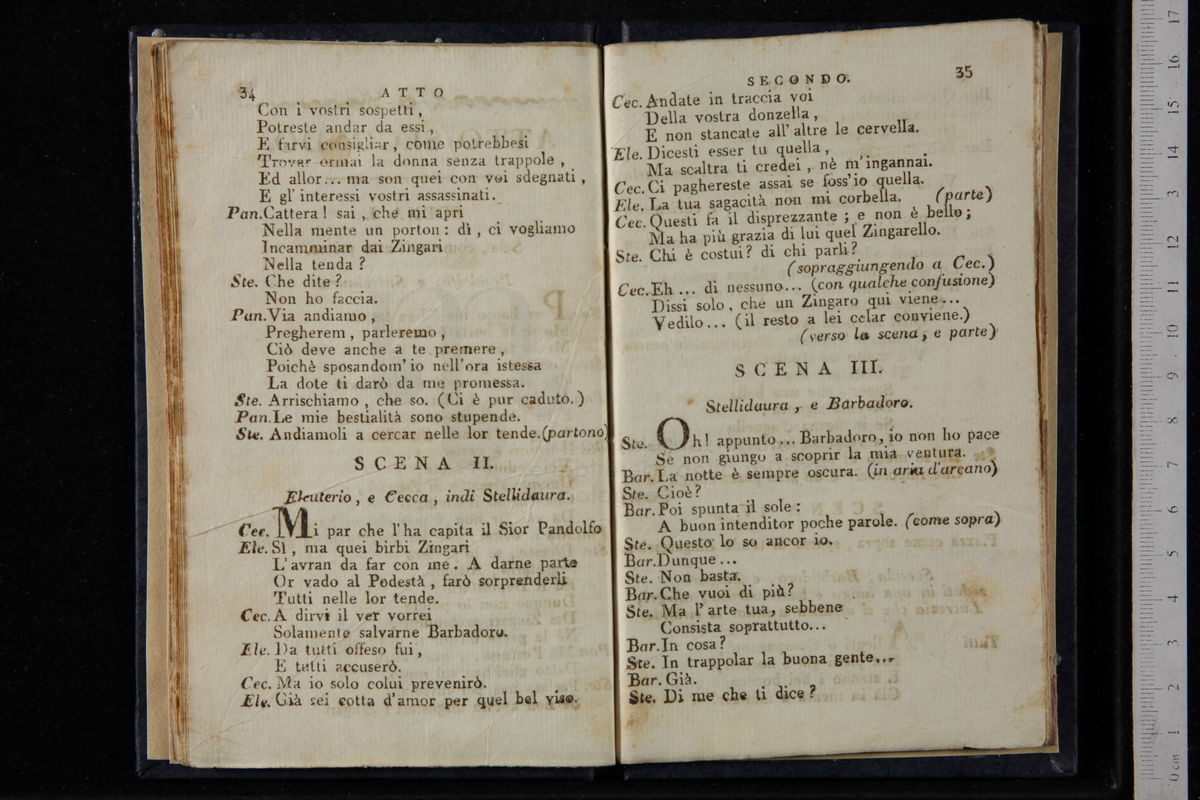 34 ATTO
Con i vostri sospetti,
Potreste andar da essi,
E farvi consigliar, come potrebbesi
Trovar ormai la donna senza trappole,
Ed allor... ma son quei con voi sdegnati,
E gl' interessi vostri assassinati.
Pan. Cattera! sai, che mi apri
Nella mente un porton: dì, ci vogliamo
Incamminar dai Zingari
Nella tenda?
Ste. Che dite?
Non ho faccia.
Pan. Via andiamo,
Pregherem, parleremo,
Ciò deve anche a te premere,
Poichè sposandom' io nell'ora istessa
La dote ti darò da me promessa.
Ste. Arrischiamo, che so. (Ci è pur caduto.)
Pan. Le mie bestialità sono stupende.
Ste. Andiamoli a cercar nelle lor tende. (partono)
SCENA II.
Eleuterio, e Cecca, indi Stellidaura.
Cec. Mi par che l'ha capita il Sior Pandolfo
Ele. Sì, ma quei birbi Zingari
L'avran da far con me. A darne parte
Or vado al Podestà, farò sorprenderli
Tutti nelle lor tende.
Cec. A dirvi il ver vorrei
Solamente salvarne Barbadoro.
Ele. Da tutti offeso fui,
E tutti accuserò.
Cec. Ma io solo colui prevenirò.
Ele. Già sei cotta d'amor per quel bel viso.
SECONDO. 35
Cec. Andate in traccia voi
Della vostra donzella,
E non stancate all' altre le cervella.
Ele. Dicesti esser tu quella,
Ma scaltra ti credei, nè m'ingannai.
Cec. Ci paghereste assai se foss'io quella.
Ele. La tua sagacità non mi corbella. (parte)
Cec. Questi fa il disprezzante; e non è bello;
Ma ha più grazia di lui quel Zingarello.
Ste. Chi è costui? di chi parli?
(sopraggiungendo a Cec.)
Cec. Eh... di nessuno... (con qualche confusione)
Dissi solo, che un Zingaro qui viene...
Vedilo... (il resto a lei celar conviene.)
(verso la scena, e parte)
SCENA III.
Stellidaura, e Barbadoro.
Ste. Oh! appunto... Barbadoro, io non ho pace
Se non giungo a scoprir la mia ventura.
Bar. La notte è sempre oscura. (in aria d'arcano)
Ste. Cioè?
Bar. Poi spunta il sole:
A buon intenditor poche parole. (come sopra)
Ste. Questo lo so ancor io.
Bar. Dunque...
Ste. Non basta.
Bar. Che vuoi di più?
Ste. Ma l'arte tua, sebbene
Consista soprattutto...
Bar. In cosa?
Ste. In trappolar la buona gente...
Bar. Già.
Ste. Di me che ti dice?
0 cm 1 2 3 4 5 6 7 8 9 10 11 12 13 14 15 16 17